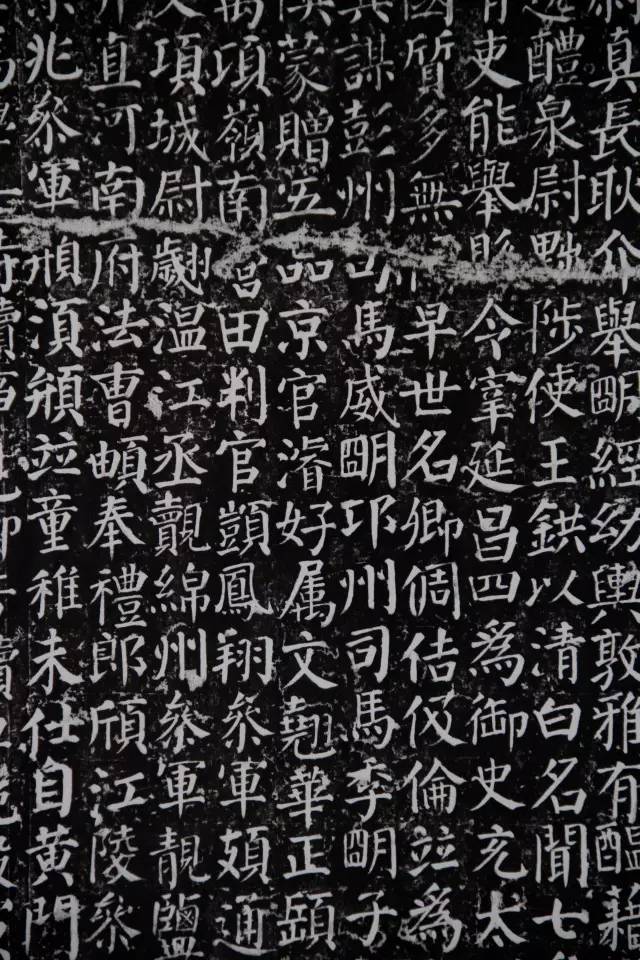 真長耿介舉明經幼輿敦雅有醖藉
醴泉尉黜陟使王鉷以清白名聞七
吏能舉縣令宰延昌四為御史充太
國質多無早世名卿倜佶伋倫竝為
謀彭州司馬威明邛州司馬季明子
蒙贈五品京官濬好屬文翹華正頲
項嶺南營田判官顗鳳翔參軍頍通
項城尉翽溫江丞覿綿州參軍靚鹽
直河南府法曹頔奉禮郎頎江陵參
兆參軍頫湏頯竝童稚未仕自黃門